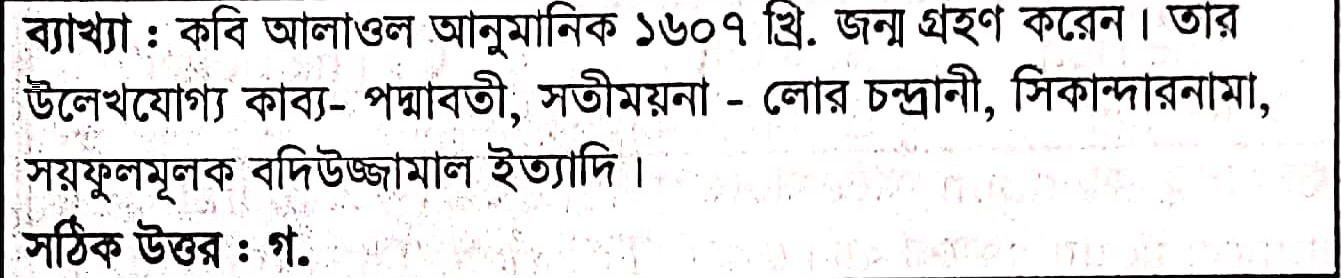 ব্যাখ্যা : কবি আলাওল আনুমানিক ১৬০৭ খ্রি. জন্ম গ্রহণ করেন । তার
উলেখযোগ্য কাব্য- পদ্মাবতী, সতীময়না - লোর চন্দ্রানী, সিকান্দারনামা,
সয়ফুলমূলক বদিউজ্জামাল ইত্যাদি ।
সঠিক উত্তর : গ.